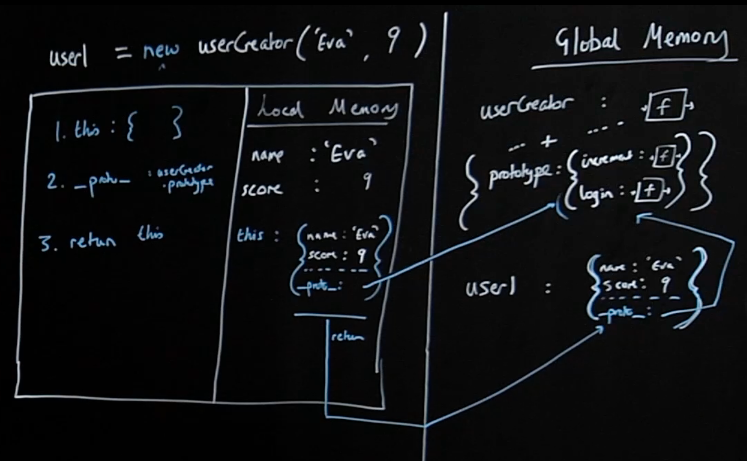 user1 = new userCreator('Eva', 9)
1. this : { }
2. __proto__ : userCreator
.prototype
3. return this
Local Memory
name : 'Eva'
score : 9
this : { name : 'Eva'
score : 9
__proto__ : }
return
Global Memory
userCreator : f
--- + ---
{ prototype : { increment : f
login : f } }
user1 : { name : 'Eva'
score : 9
__proto__ : }